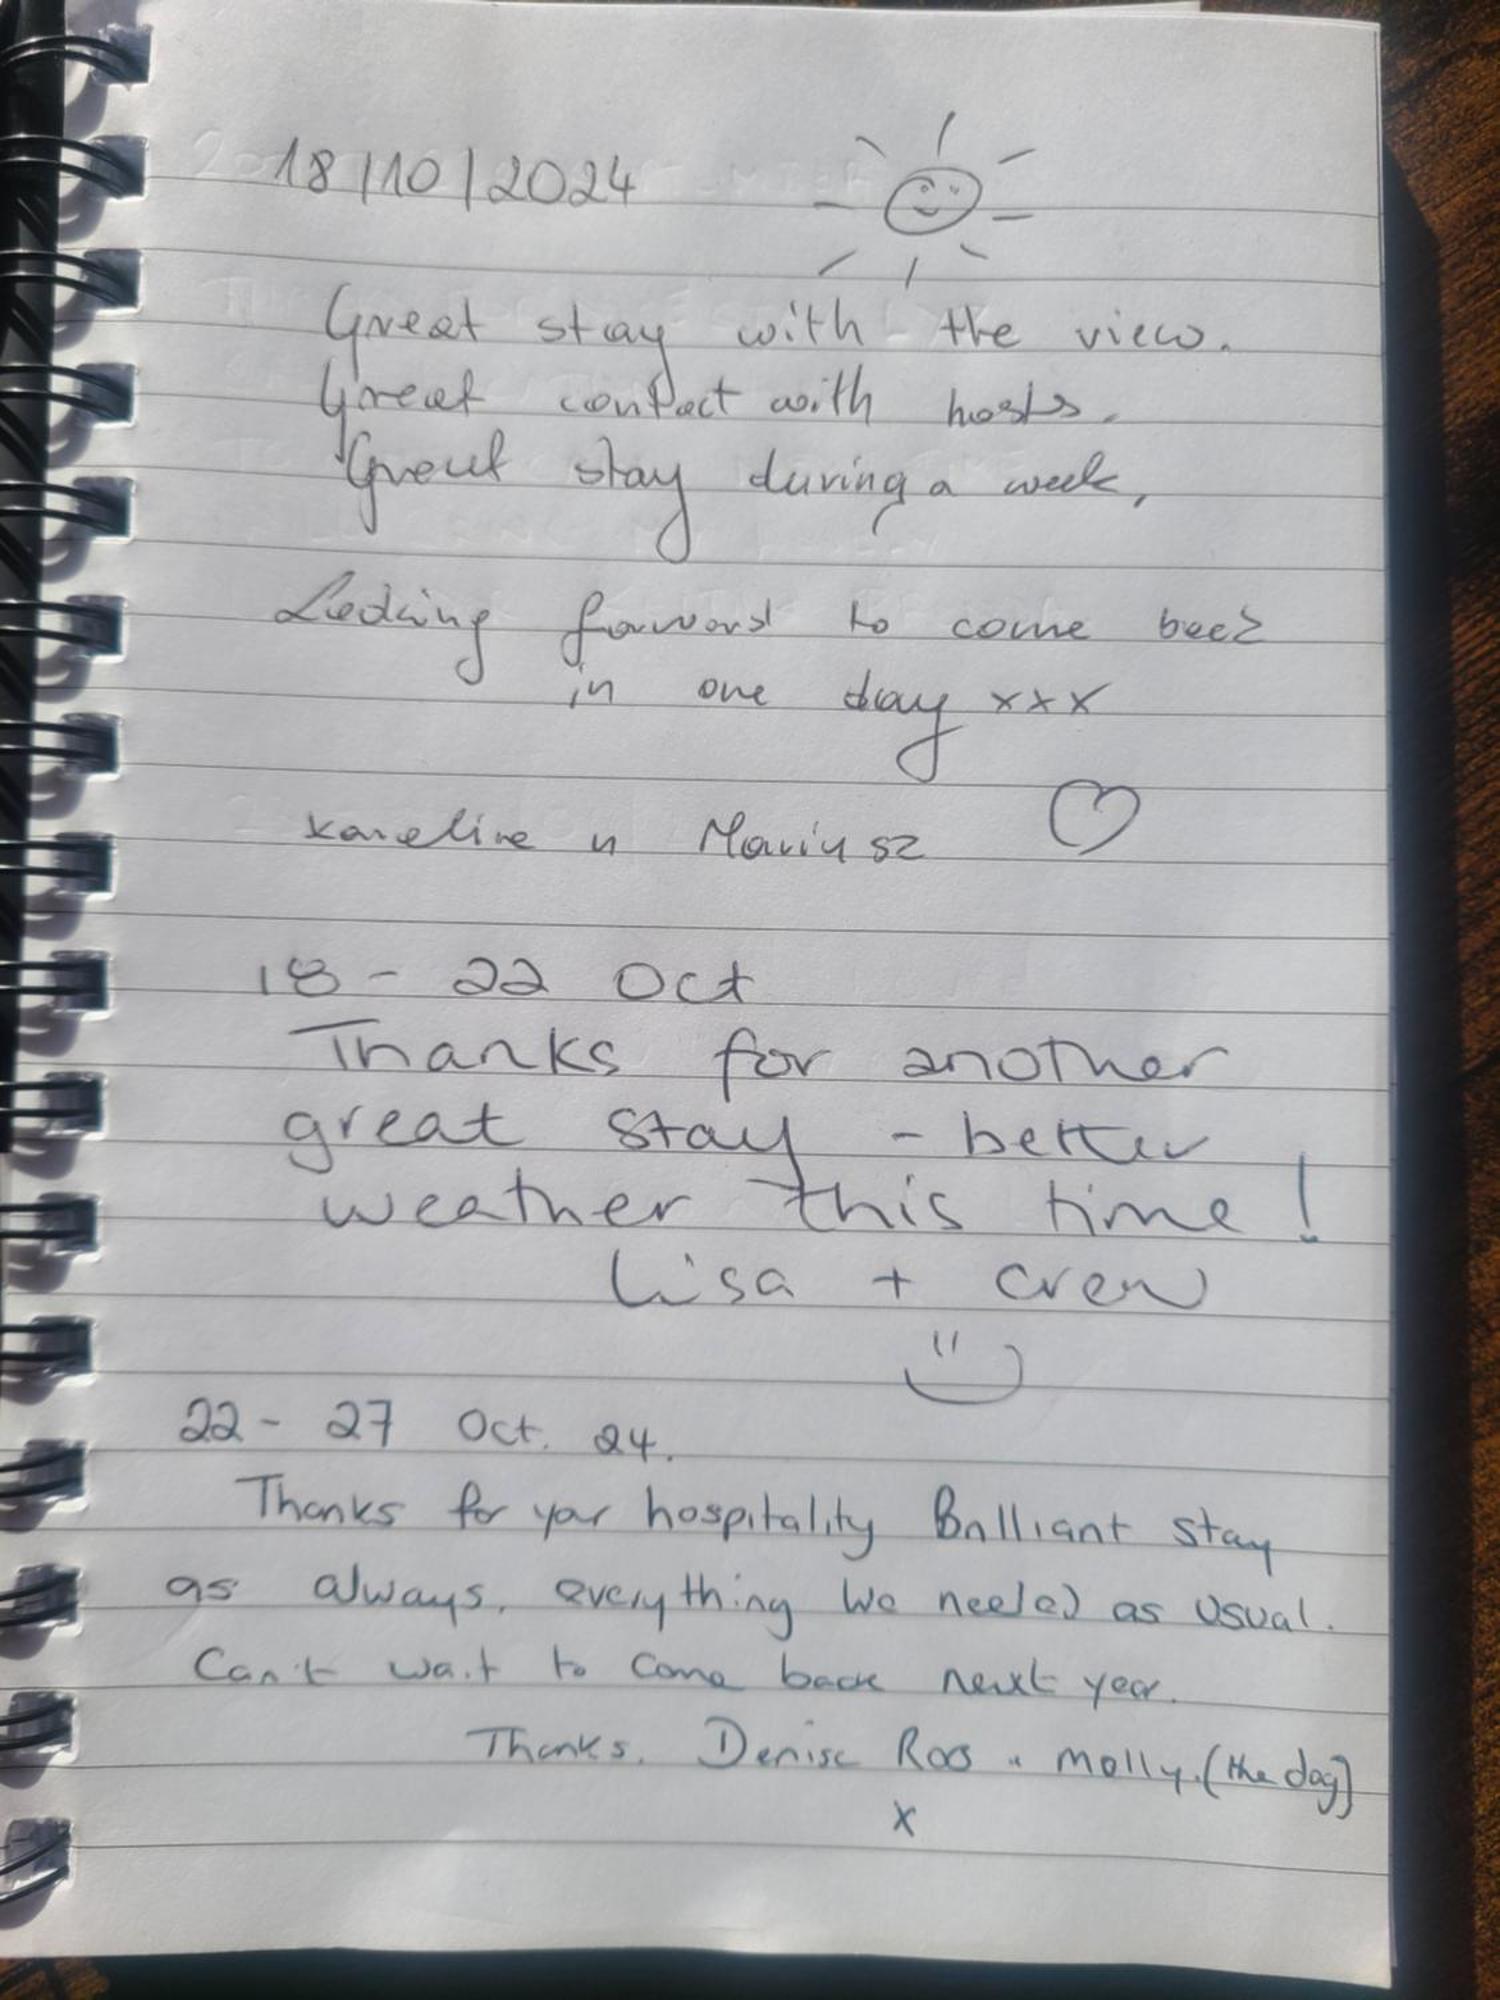 18/10/2024
Great stay with the view.
Great contact with hosts.
Great stay during a week,
Looking forward to come back
in one day xxx
Karelina n Mariusz
18 - 22 Oct
Thanks for another
great stay - better
weather this time!
Lisa + crew
22 - 27 Oct. 24.
Thanks for your hospitality Brilliant stay
as always. everything we needed as usual.
Can't wait to come back next year.
Thanks. Denise Ros & Molly. (the dog)
x